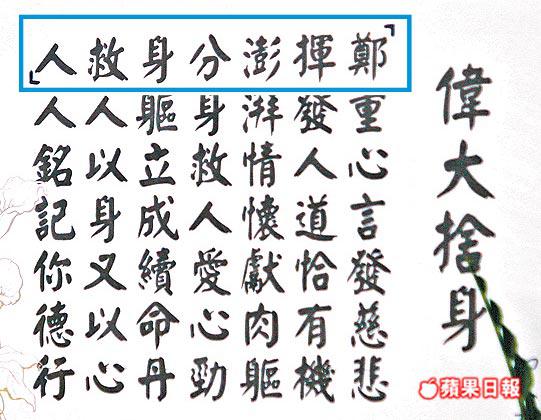 偉大捨身
鄭重心言發慈悲
揮發人道恰有機
澎湃情懷獻肉軀
分身救人愛心勁
身軀立成續命丹
救人以身又以心
人人銘記你德行
蘋果日報